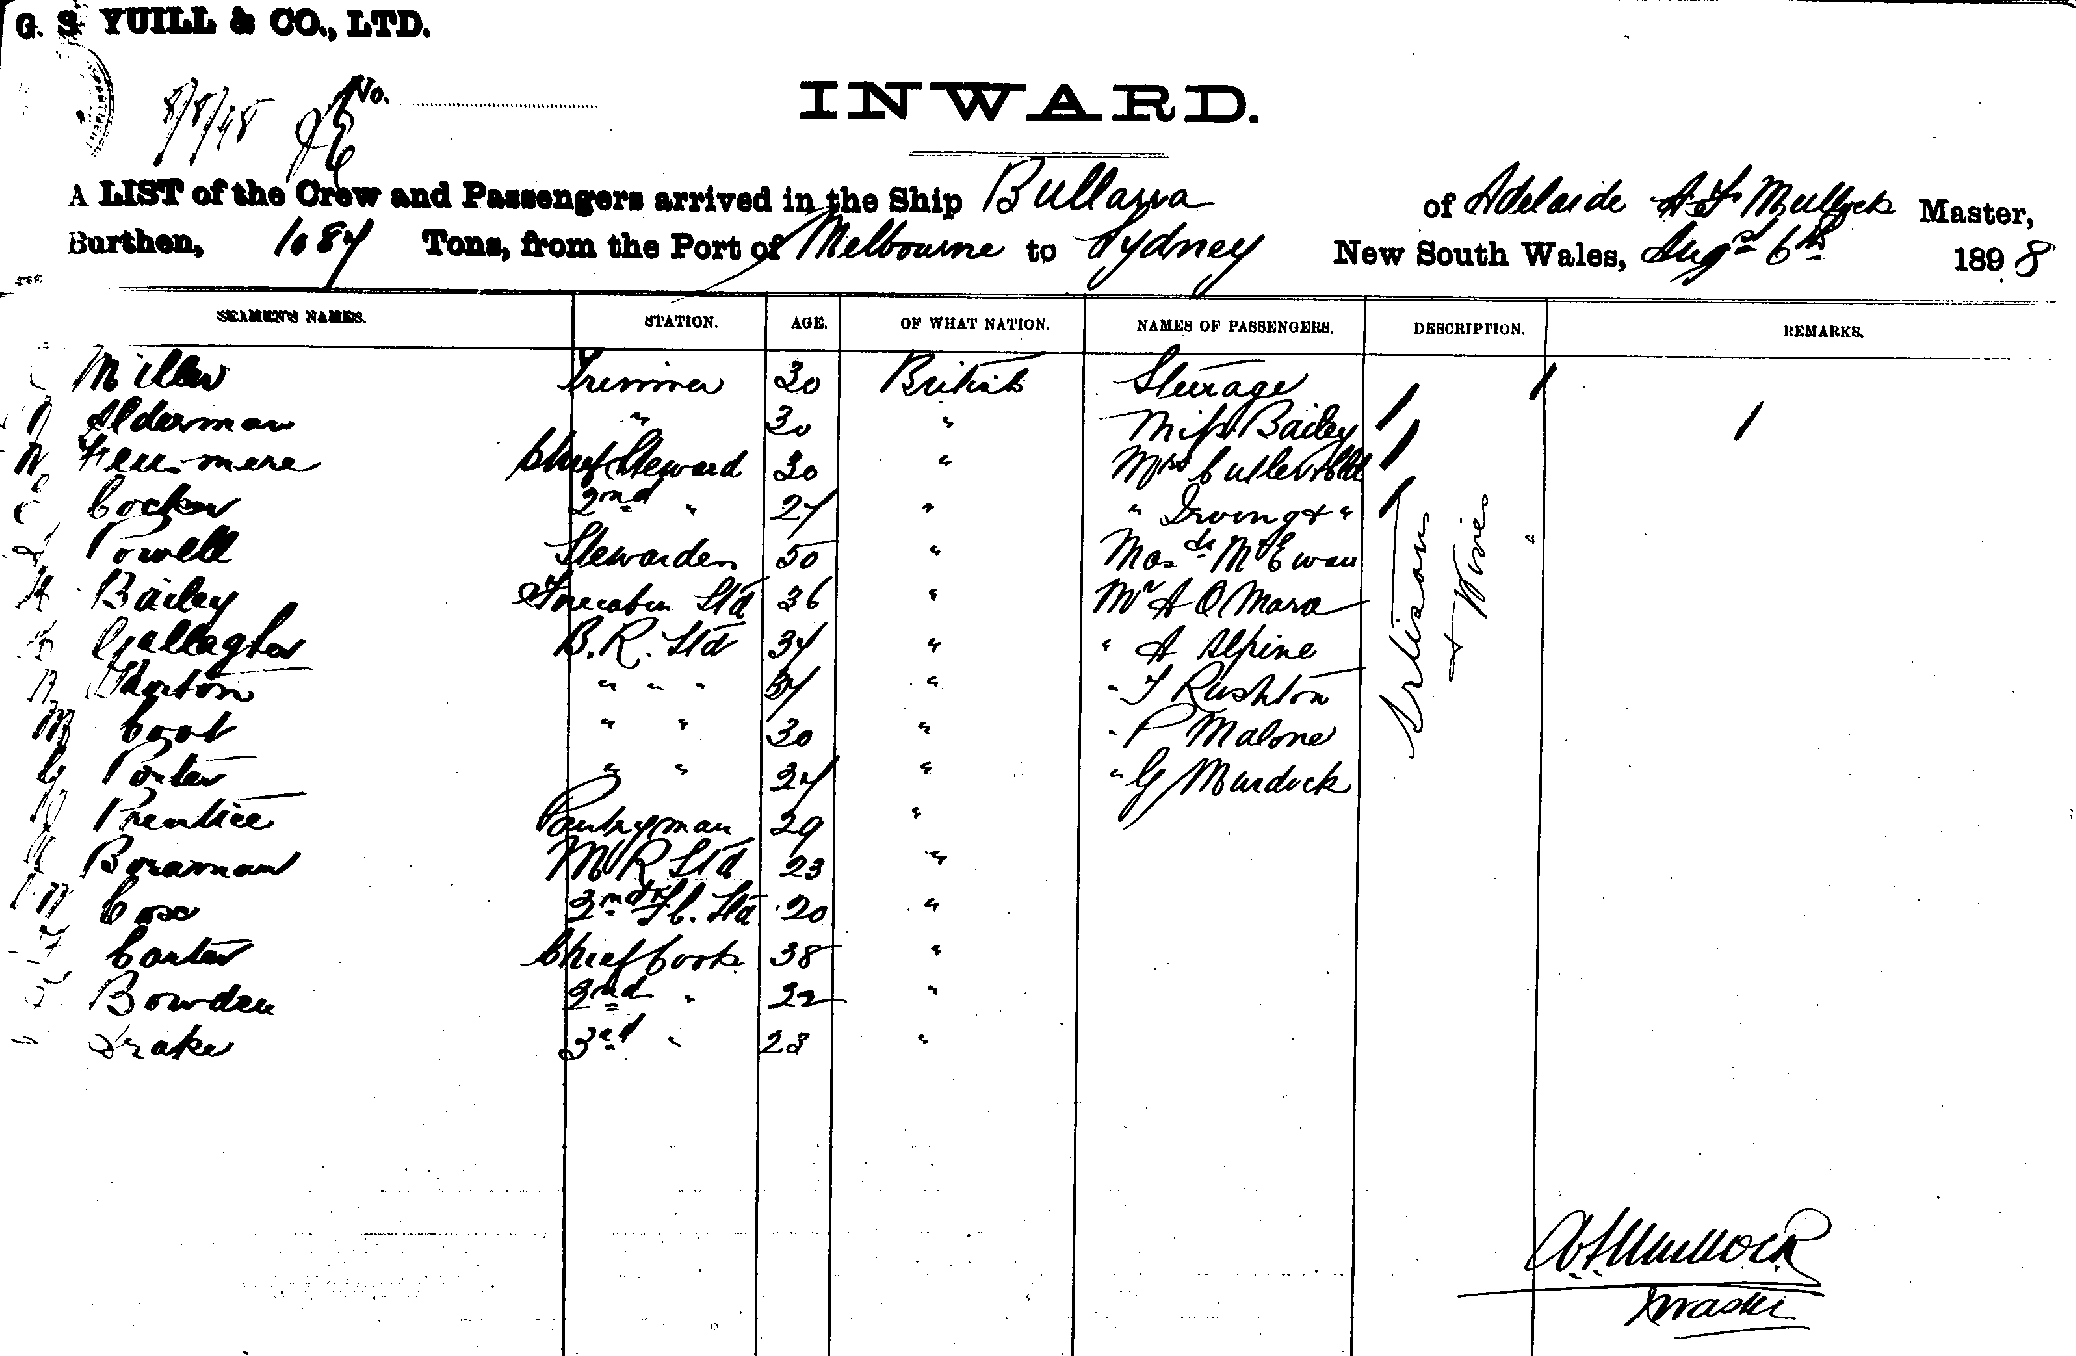 G. S. YUILL & CO., LTD.
8/8/98 No.
INWARD.
A LIST of the Crew and Passengers arrived in the Ship Bullarra of Adelaide A. F. Mullock Master,
Burthen, 1084 Tons, from the Port of Melbourne to Sydney New South Wales, Augst 6th 1898
SEAMEN'S NAMES. STATION. AGE. OF WHAT NATION. NAMES OF PASSENGERS. DESCRIPTION. REMARKS.
Miller Trimmer 30 British Steerage
Alderman " 30 " Miss Bailey
Chief Steward 30 " Mrs Cutler & Chd
Cocker 2nd " 24 " " Irving & "
Powell Stewardess 50 " McEwan
H Bailey Forecabin Std 36 " Mr A O Mara
Gallagher B. R. Std 34 " " A Alpine
Thorton " " " 34 " " T Rushton
M Coot " " 30 " " P Malone
G Porter " " 24 " " G Murdock
Prentice Pantryman 29 "
Boraman M R Std 23 "
Cox 2nd F C. Std 20 "
Carter Chief Cook 38 "
Bowden 2nd " 22 "
Drake 3rd " 23 "
Artisans
& Wives
A. F. Mullock
Master